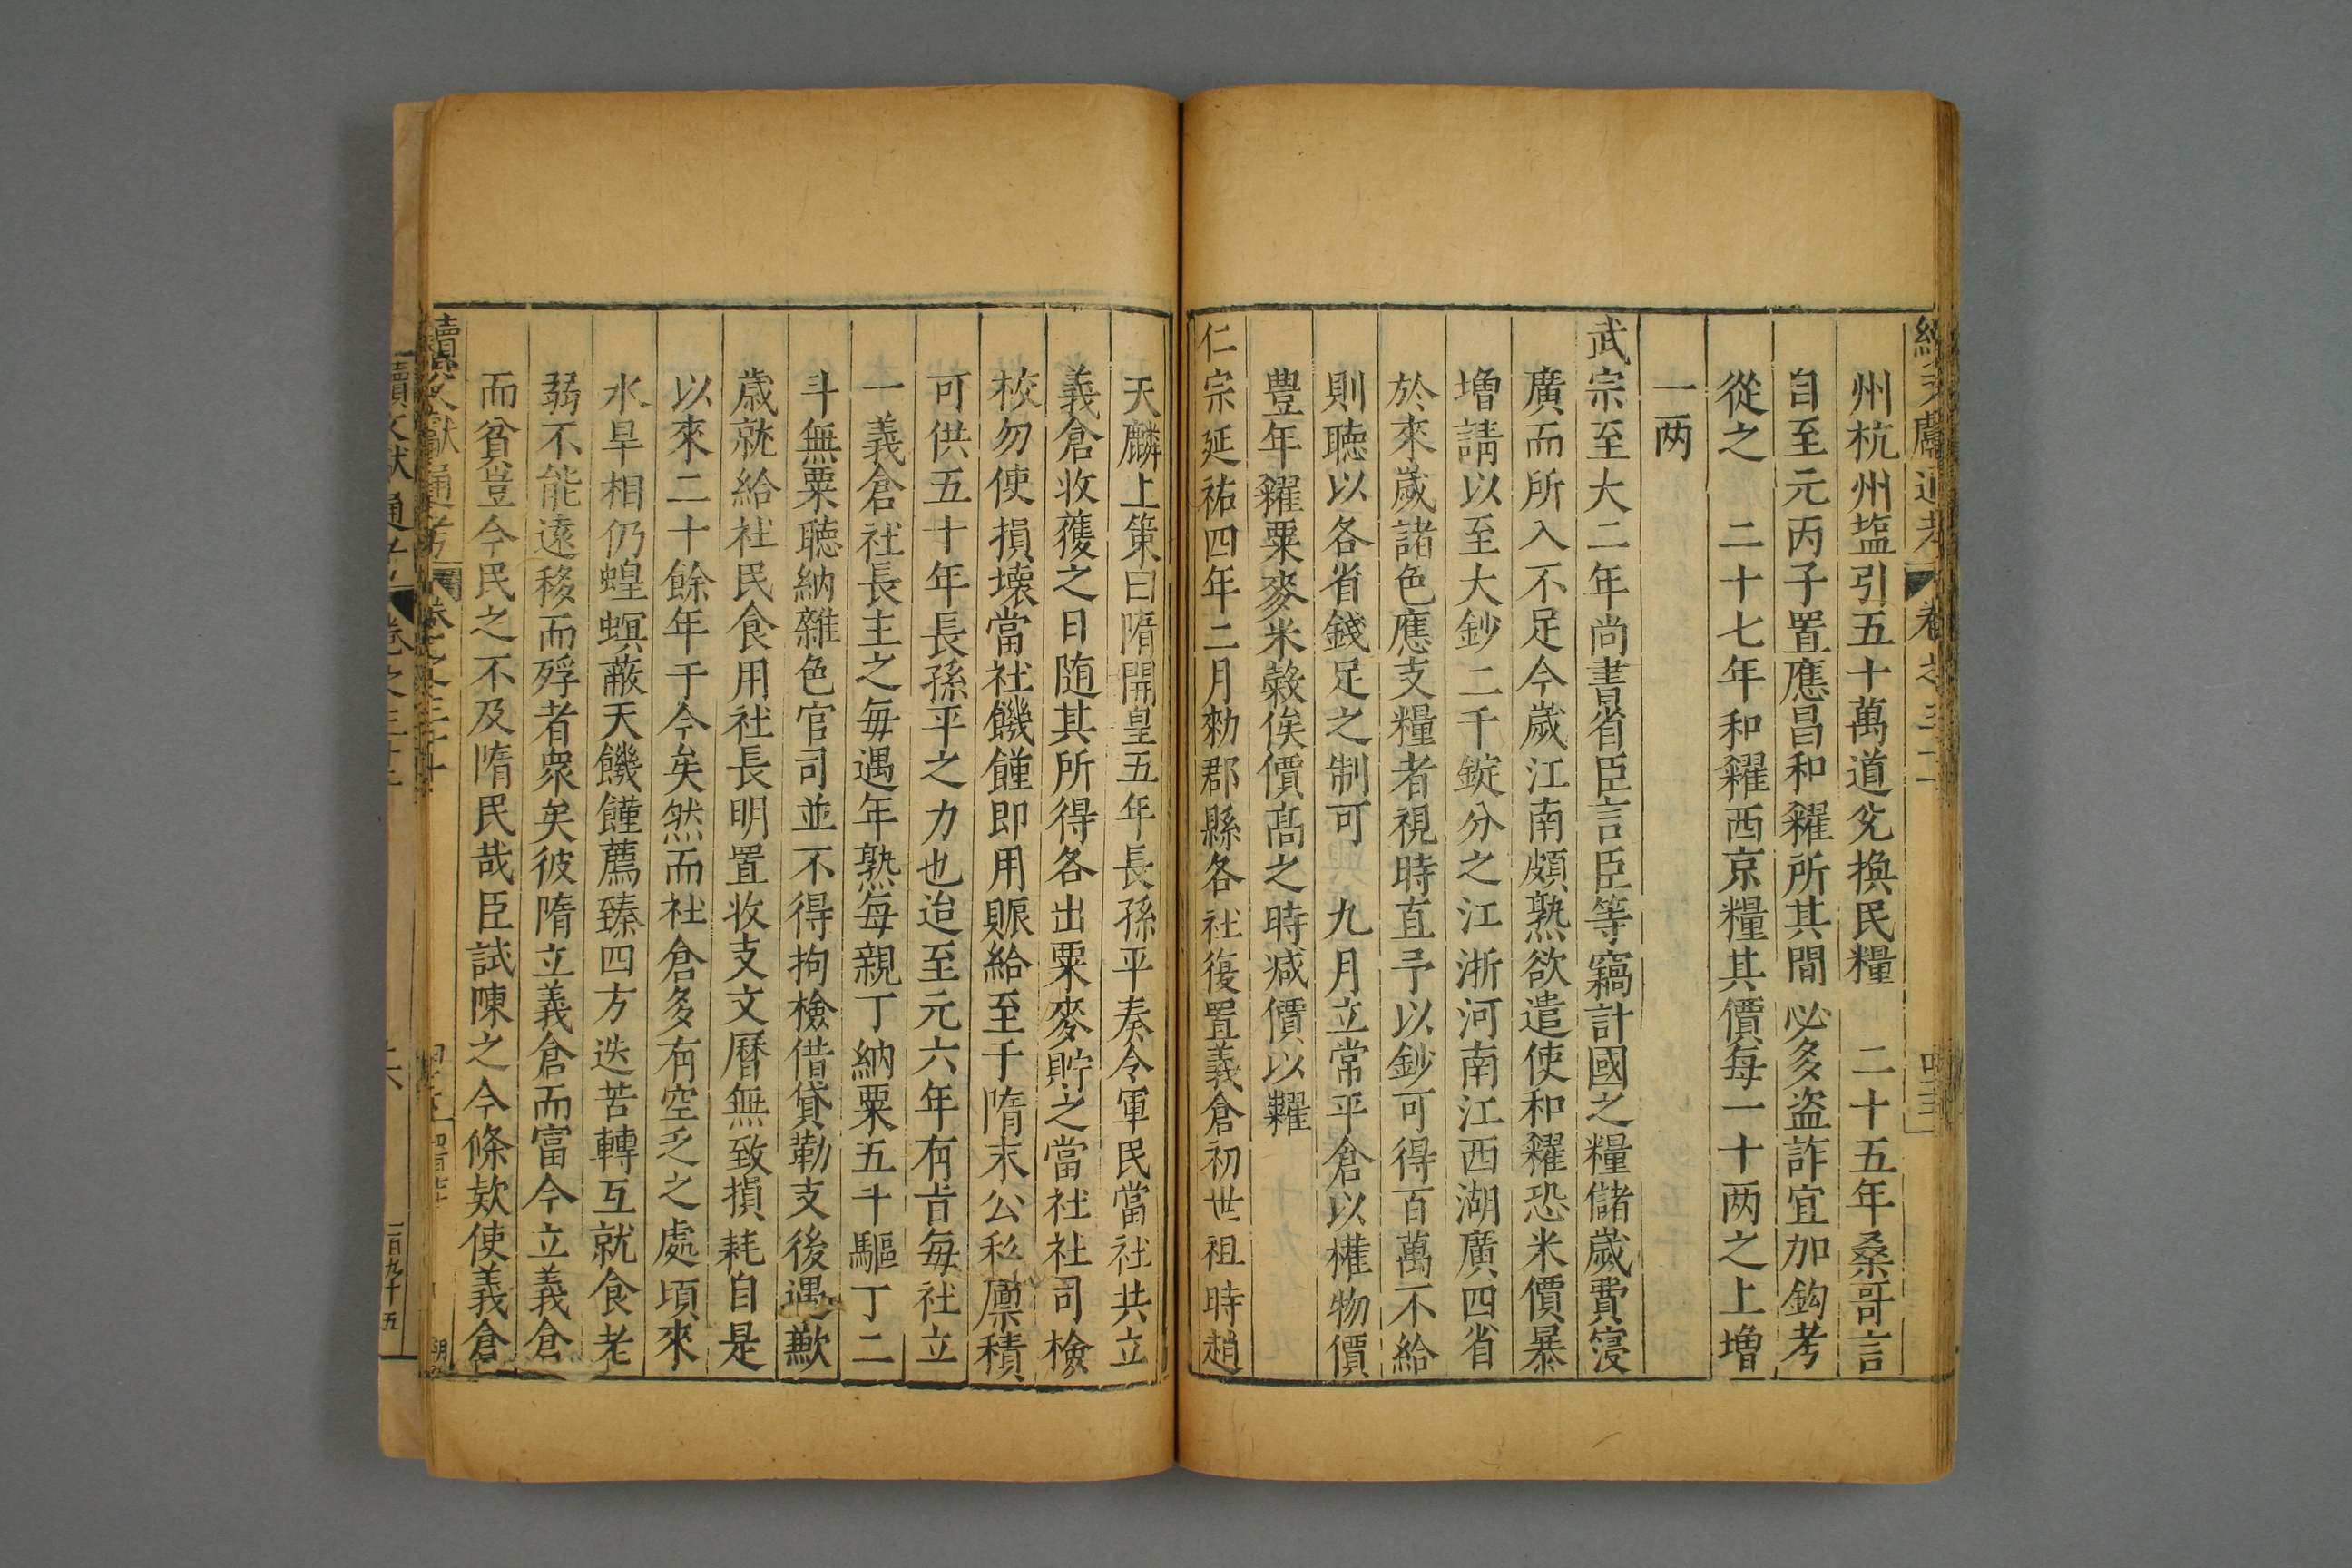 續文獻通考 卷之三十
州杭州塩引五十萬道兊換民糧 二十五年桑哥言
自至元丙子置應昌和糴所其間必多盗詐宜加鈎考
從之 二十七年和糴西京糧其價每一十两之上增
一两
武宗至大二年尚書省臣言臣等竊計國之糧儲歲費寖
廣而所入不足今歲江南頗熟欲遣使和糴恐米價暴
增請以至大鈔二千錠分之江浙河南江西湖廣四省
於來歲諸色應支糧者視時直予以鈔可得百萬不給
則聴以各省錢足之制可 九月立常平倉以權物價
豊年糴粟麥米穀俟價髙之時减價以糶
仁宗延祐四年二月勑郡縣各社復置義倉初世祖時趙
天麟上策曰隋開皇五年長孫平奏令軍民當社共立
義倉收穫之日随其所得各出粟麥貯之當社社司檢
校勿使損壊當社饑饉即用賑給至于隋末公私廪積
可供五十年長孫平之力也迨至元六年有旨每社立
一義倉社長主之每遇年熟每親丁納粟五斗驅丁二
斗無粟聴納雜色官司並不得拘檢借貸勒支後遇歉
歳就給社民食用社長明置收支文曆無致損耗自是
以來二十餘年于今矣然而社倉多有空乏之處頃來
水旱相仍蝗螟蔽天饑饉薦臻四方迭苦轉互就食老
弱不能遠移而殍者衆矣彼隋立義倉而富今立義倉
而貧豈今民之不及隋民哉臣試陳之今條欵使義倉
續文獻通考 卷之三十
續文獻通考 卷之三十
二百九十五